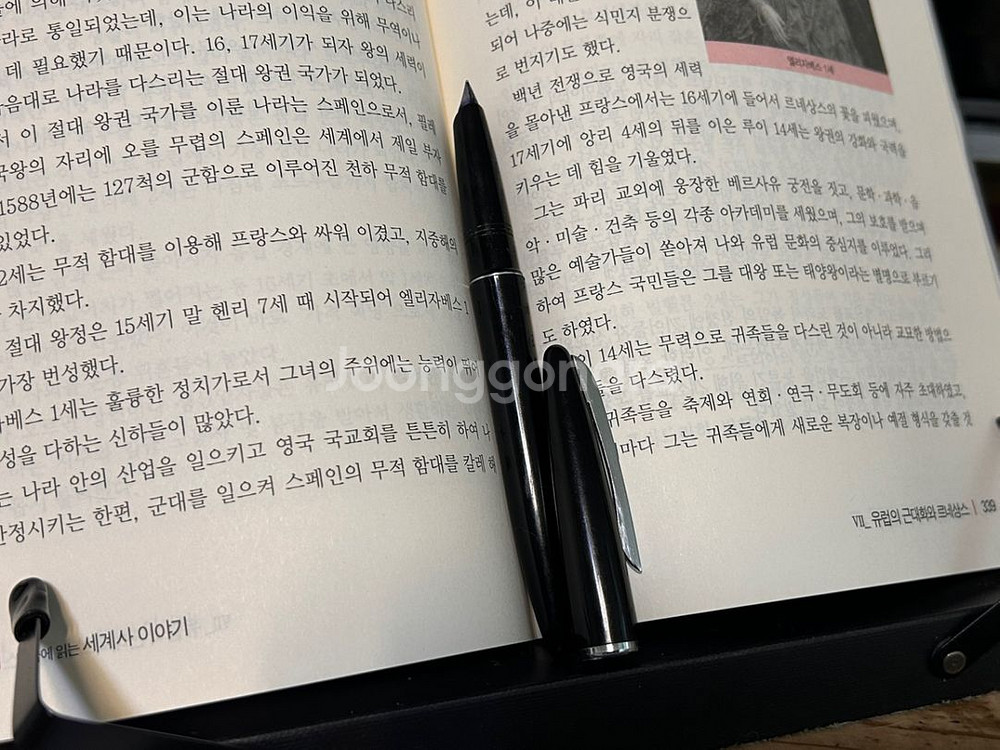 라로 통일되었는데, 이는 나라의 이익을 위해 무역이나
데 필요했기 때문이다. 16, 17세기가 되자 왕의 세력이
마음대로 나라를 다스리는 절대 왕권 국가가 되었다.
서 이 절대 왕권 국가를 이룬 나라는 스페인으로서, 펠리
국왕의 자리에 오를 무렵의 스페인은 세계에서 제일 부자
1588년에는 127척의 군함으로 이루어진 천하 무적 함대를
있었다.
2세는 무적 함대를 이용해 프랑스와 싸워 이겼고, 지중해의
차지했다.
절대 왕정은 15세기 말 헨리 7세 때 시작되어 엘리자베스 1
가장 번성했다.
베스 1세는 훌륭한 정치가로서 그녀의 주위에는 능력이
성을 다하는 신하들이 많았다.
는 나라 안의 산업을 일으키고 영국 국교회를 튼튼히 하여 나
안정시키는 한편, 군대를 일으켜 스페인의 무적 함대를 칼레 해
에 읽는 세계사 이야기
는데, 이
되어 나중에는 식민지 분쟁으
로 번지기도 했다.
엘리자베스 1세
백년 전쟁으로 영국의 세력
을 몰아낸 프랑스에서는 16세기에 들어서 르네상스의 꽃을 피웠으며,
17세기에 앙리 4세의 뒤를 이은 루이 14세는 왕권의 강화와 국력을
키우는 데 힘을 기울였다.
그는 파리 교외에 웅장한 베르사유 궁전을 짓고, 문학·과학·음
악·미술·건축 등의 각종 아카데미를 세웠으며, 그의 보호를 받으며
많은 예술가들이 쏟아져 나와 유럽 문화의 중심지를 이루었다. 그리
하여 프랑스 국민들은 그를 대왕 또는 태양왕이라는 별명으로 부르기
도 하였다.
이 14세는 무력으로 귀족들을 다스린 것이 아니라 교묘한 방법으
들을 다스렸다.
귀족들을 축제와 연회·연극·무도회 등에 자주 초대하였고,
마다 그는 귀족들에게 새로운 복장이나 예절 형식을 갖출 것
VII_ 유럽의 근대화와 르네상스 | 339